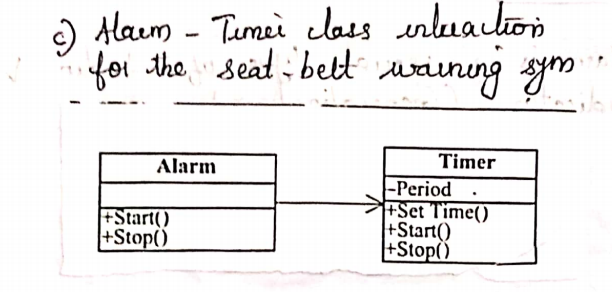 c) Alarm - Timer class interaction
for the seat-belt warning sym
Alarm
+Start()
+Stop()
Timer
-Period
+Set Time()
+Start()
+Stop()